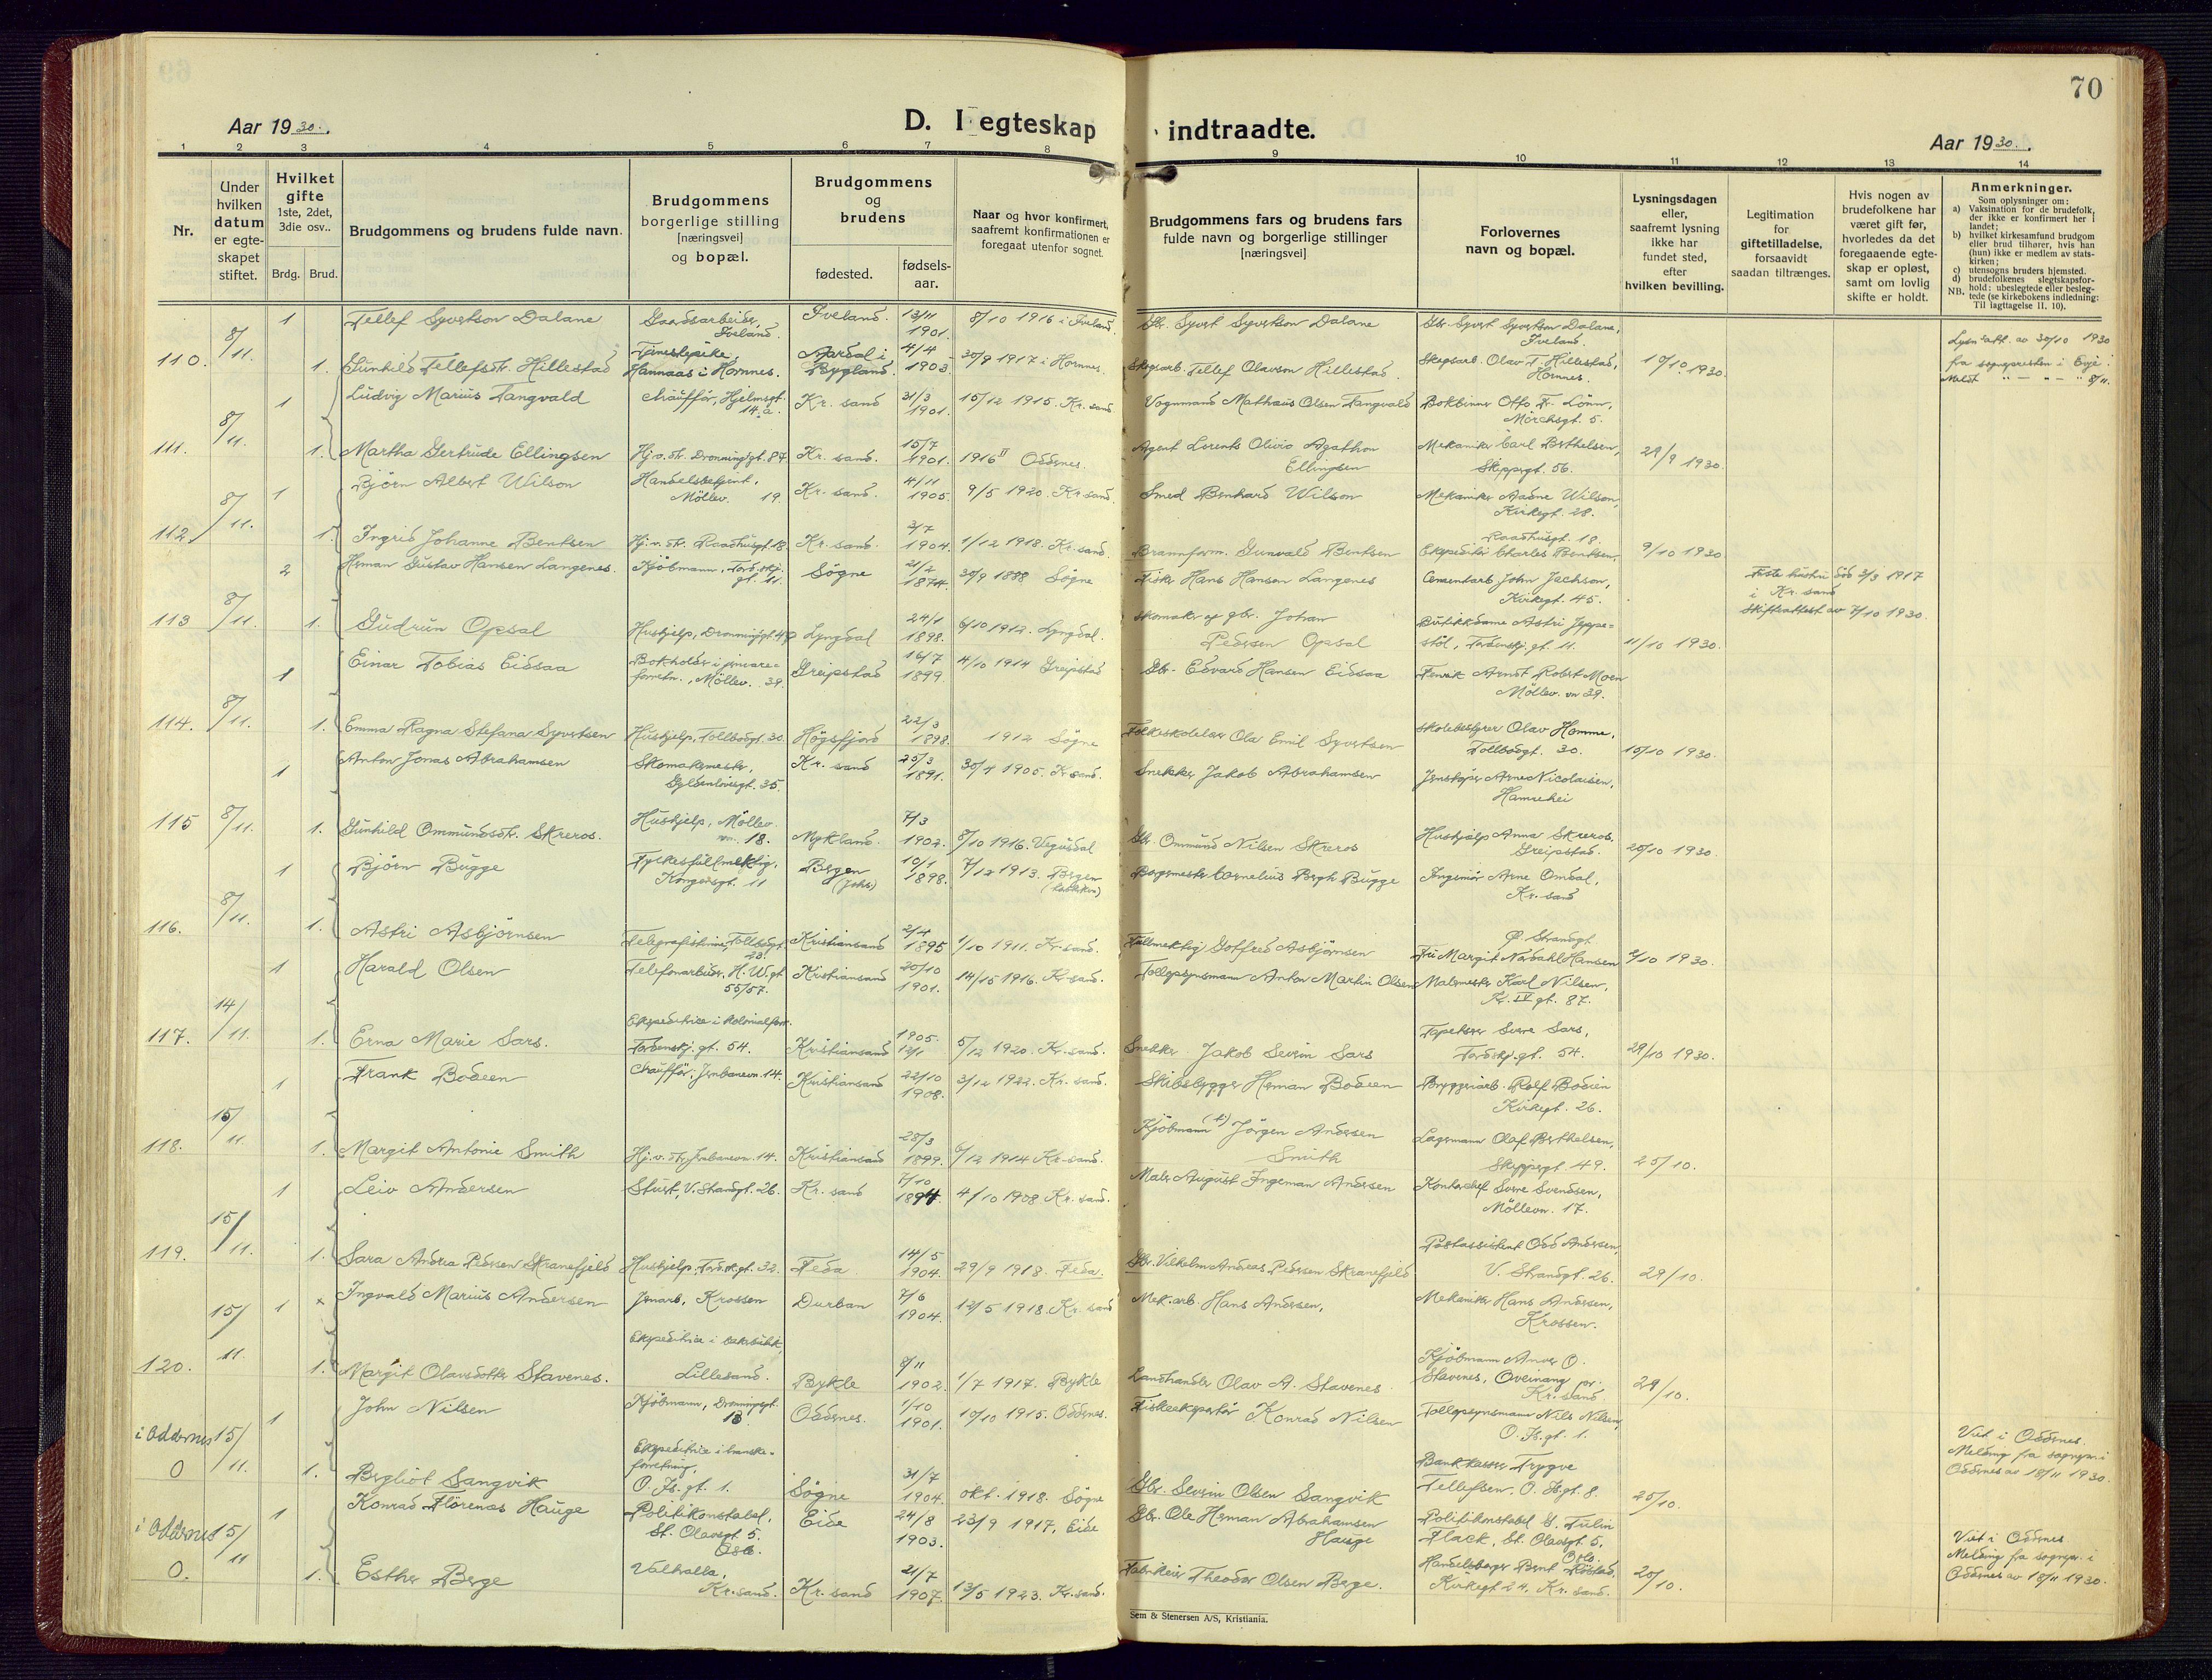 70
Aar 1930.
D. I egteskap indtraadte.
Aar 1930.
1 2 3 4 5 6 7 8 9 10 11 12 13 14
Nr.
Under hvilken datum er egteskapet stiftet.
Hvilket gifte 1ste, 2det, 3die osv..
Brdg. Brud.
Brudgommens og brudens fulde navn.
Brudgommens borgerlige stilling [næringsvei] og bopæl.
Brudgommens og brudens
fødested.
fødselsaar.
Naar og hvor konfirmert, saafremt konfirmationen er foregaat utenfor sognet.
Brudgommens fars og brudens fars fulde navn og borgerlige stillinger [næringsvei]
Forlovernes navn og bopæl.
Lysningsdagen eller, saafremt lysning ikke har fundet sted, efter hvilken bevilling.
Legitimation for giftetilladelse, forsaavidt saadan tiltrænges.
Hvis nogen av brudefolkene har været gift før, hvorledes da det foregaaende egteskap er opløst, samt om lovlig skifte er holdt.
Anmerkninger.
Som oplysninger om:
a) Vaksination for de brudefolk, der ikke er konfirmert her i landet;
b) hvilket kirkesamfund brudgom eller brud tilhører, hvis han (hun) ikke er medlem av statskirken;
c) utensogns bruders hjemsted.
d) brudefolkenes slegtskapsforhold; ubeslegtede eller beslegtede (se kirkebokens indledning:
NB. Til iagttagelse II. 10).
110. 8/11.
1 Tellef Syvertson Dalane Gaardsarbeider, Iveland. Iveland. 13/11 1901. 8/10 1916 i Iveland Gbr. Syvert Syvertson Dalane Gbr. Syvert Syvertson Dalane, Iveland.
1. Gunhild Tellefsdt. Hillestad Tjenestepike, Hannaas i Hornnes. Aardal i Bygland 4/4 1903 30/9 1917 i Hornnes. Skogsarb. Tellef Olavson Hillestad. Skogsarb. Olav T. Hillestad, Hornnes. 10/10 1930.
Lysn.att. av 30/10 1930 fra sognepresten i Evje. Meldt " — " — " 8/11.
111. 8/11.
1 Ludvig Marius Tangvald Chauffør, Hjelmsgt. 14.a. Kr. sand 31/3 1901. 15/12 1915. Kr. sand Vognmand Mathæus Olsen Tangvald Bokbinder Otto Fr. Lönn, Mörchsgt. 5.
1. Martha Gertrude Ellingsen Hj.v. st. Dronninggt. 87 Kr. sand. 15/7 1901. 1916 II Oddernes. Agent Lorents Olivio Agathon Ellingsen Mekaniker Carl Berthelsen, Skippergt. 56. 29/9 1930.
112. 8/11.
1 Björn Albert Wilson Handelsbetjent, Möllev. 19. Kr. sand. 4/11 1905. 9/5 1920. Kr. sand. Smed Bernhard Wilson Mekaniker Aadne Wilson, Kirkegt. 28.
1. Ingrid Johanne Bentsen Hj.v. st. Raadhusgt. 18. Kr. sand. 3/7 1904. 1/12 1918. Kr. sand. Brannform. Gunvald Bentsen Ekspeditör Charles Bentsen, Raadhusgt. 18. 9/10 1930
113 8/11.
2 Herman Gustav Hansen Langenes. Kjöbmann, Tord.skj. gt. 11. Søgne 21/2 1874. 30/9 1888 Søgne Fisker Hans Hansen Langenes Cementarb. John Jachson, Kirkegt. 45. Första hustru död 3/3 1917 i Kr. sand Skifteattest av 7/10 1930.
1. Gudrun Opsal Hushjelp, Dronninggt. 49 Lyngdal 24/1 1898. 6/10 1912. Lyngdal. Skomaker og gbr. Johan Pedersen Opsal Butikkdame Astri Jeppestöl, Tordenskj. gt. 11. 11/10 1930.
114. 8/11.
1 Einar Tobias Eidsaa Bokholder i privat-forretn., Möllev. 39. Greipstad 16/7 1899. 4/10 1914 Greipstad Gbr. Edvard Hansen Eidsaa Fenrik Arndt Robert Moen Möllev. vn 39.
1. Emma Ragna Stefana Syvertsen Hushjelp, Tollbodgt. 30. Högsfjord 22/3 1898. 1912 Søgne Folkeskolelærer Ola Emil Syvertsen Skolebestyrer Olav Homme, Tollbodgt. 30. 15/10 1930.
115 8/11.
1 Anton Jonas Abrahamsen Skomakermester, Gyldenlövesgt. 35. Kr. sand 25/3 1891. 30/4 1905. Kr. sand. Snekker Jakob Abrahamsen Jernstöper Arne Nicolaisen, Hamrehei
1. Gunhild Ommundsdt. Skreros. Hushjelp, Möllev. vn. 18. Mykland. 7/3 1902. 8/10 1916. Vegusdal Gbr. Ommund Nilsen Skreros Hushjelp Anna Skreros, Greipstad. 20/10 1930.
116. 8/11.
1 Björn Bugge Fylkesfullmektig, Kongensgt. 11 Bergen (Johs) 10/1 1898. 7/12 1913. Bergen Bergmester Cornelius Bergh Bugge Ingeniör Arne Omdal, Kr. sand
1. Astri Asbjörnsen Telegrafistinne, Tollbodgt. 23. Kristiansand 2/4 1895 1/10 1911. Kr. sand. Fullmektig Gotfred Asbjörnsen Fru Margit Nødahl Hansen Ø. Strandgt. 9/10 1930.
117. 14/11.
1 Harald Olsen Telefonarbeider, H. W.gt. 55/57. Kristiansand 20/10 1901. 14/15 1916. Kr. sand. Tollopsynsmann Anton Martin Olsen Malermester Karl Nilsen, Kr. IV gt. 87.
1. Erna Marie Sars. Ekspeditrice i kolonialforr. Tordenskj. gt. 54. Kristiansand 1905. 12/1 5/12 1920. Kr. sand. Snekker Jakob Severin Sars Tapetserer Sverre Sars, Tordskj.gt. 54. 29/10 1930.
118. 15/11.
1 Frank Bodeen Chauffför, Jernbanevn. 14. Kristiansand 22/10 1908. 3/12 1922. Kr. sand. Skibsbygger Herman Bodeen Bryggeriarb. Rolf Bodeen Kirkegt. 26.
1. Margit Antonie Smith Hj.v. st. Jernbanevn. 14. Kristiansand 28/3 1899. 6/12 1914 Kr. sand. Kjöbmann (d) Jörgen Andersen Smith Lagermann Olaf Berthelsen, Skippergt. 49. 25/10.
119. 15/11.
1 Leiv Andersen Stuert, V. Strandgt. 26. Kr. sand 7/10 1894. 4/10 1908 Kr. sand. Maler August Ingeman Andersen Kontorchef Sverre Svendsen, Möllevn. 17.
1. Sara Andrea Pedersen Skranefjeld Hushjelp, Tordskj.gt. 32. Feda 14/5 1904. 29/9 1918. Feda. Gbr. Vilhelm Andreas Pedersen Skranefjeld Postassistent Odd Andersen, V. Strandgt. 26. 29/10.
120. 15/11.
1 Ingvald Marius Andersen Jernarb, Krossen Durban 7/6 1904. 12/5 1918. Kr. sand Mek.arb. Hans Andersen, Mekaniker Hans Andersen, Krossen.
1. Margit Olavsdotter Stavenes. Ekspeditrice i bakerbutik, Lillesand. Bykle 8/11 1902. 1/7 1917. Bykle Landhandler Olav A. Stavenes Kjöbmann Anver O. Stavenes, Oveinang pr. Kr. sand 29/10.
i Oddernes 15/11. O
1 John Nilsen Kjöbmann, Dronningsgt. 13 Oddernes. 1/10 1901. 10/10 1915. Oddernes. Fiskeeksportör Konrad Nilsen Tollopsynsmann Nils Nilsen, O. Js. gt. 1.
1. Bergliot Sangvik Ekspeditrice i hanskeforretning, O. Js. gt. 1. Søgne 31/7 1904. okt. 1918. Søgne Gbr. Severin Olsen Sangvik Bankkasser Trygve Tellefsen, O. Js.gt. 8. 25/10.
Viet i Oddernes. Melding fra sognepr. i Oddernes av 18/11 1930.
i Oddernes 15/11 O.
1 Konrad Flörenæs Hauge Politikonstabel, St. Olavsgt. 5. Oslo. Eide 24/8 1903. 23/9 1917, Eide Gbr. Ole Herman Abrahamsen Hauge Politikonstabel G. Tulin Flack, St. Olavsgt. 5, Oslo.
1. Esther Berge Valhalla, Kr. sand. Kr. sand 21/7 1907. 13/5 1923. Kr. sand. Fabrikeier Theodor Olsen Berge. Handelsborger Bernt Röstad, Kirkegt 24, Kr. sand. 20/10.
Viet i Oddernes Melding fra sognepr. i Oddernes av 18/11 1930.
Sem & Stenersen A/S, Kristiania.